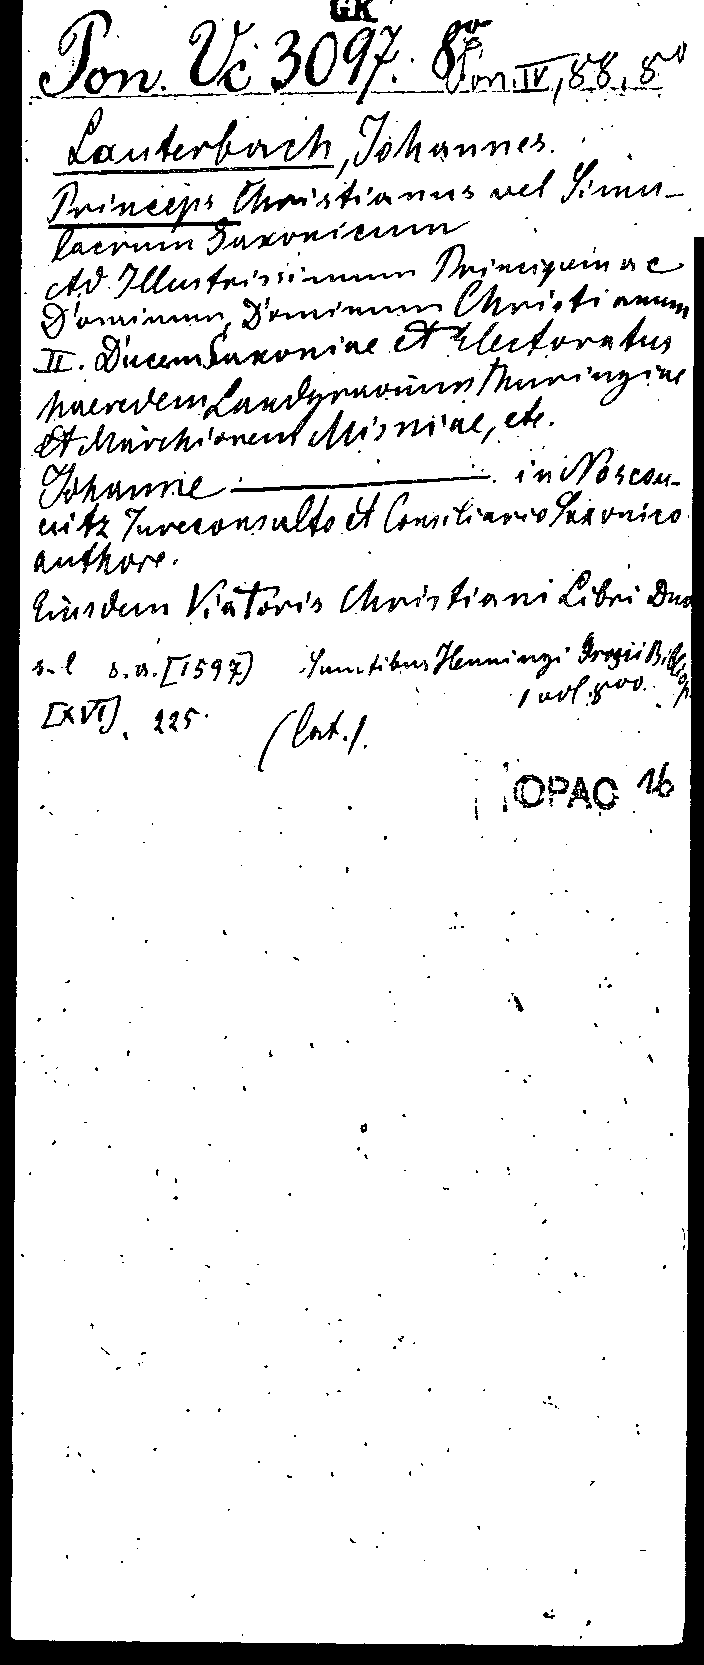 GK
Pon. Vc 3097. 8vo Pon. IV, 88, 8o
Lauterbach, Johannes.
Princeps Christianus vel Simu-
lacrum Saxonicum
Ad Illustrissimum Principem ac
Dominum, Dominum Christianum
II. Ducem Saxoniae et Electoratus
haeredem Landgravium Thuringiae
et Marchionem Misniae, etc.
Johanne ———. in Noscou-
uitz Jureconsulto et Consiliario Saxonico
authore.
Eiusdem Viatoris Christiani Libri Duo
s. l s. a. [1597] Sumtibus Henningi Grosii Bibliop.
1 vol. 8vo.
[XVI], 225.
(lat.).
OPAC 16